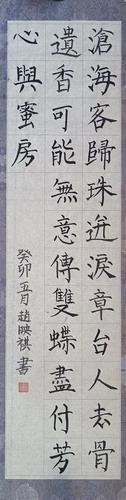 滄海客歸珠迸淚章台人去骨
遺香可能無意傳雙蝶盡付芳
心與蜜房
癸卯五月趙映祺書